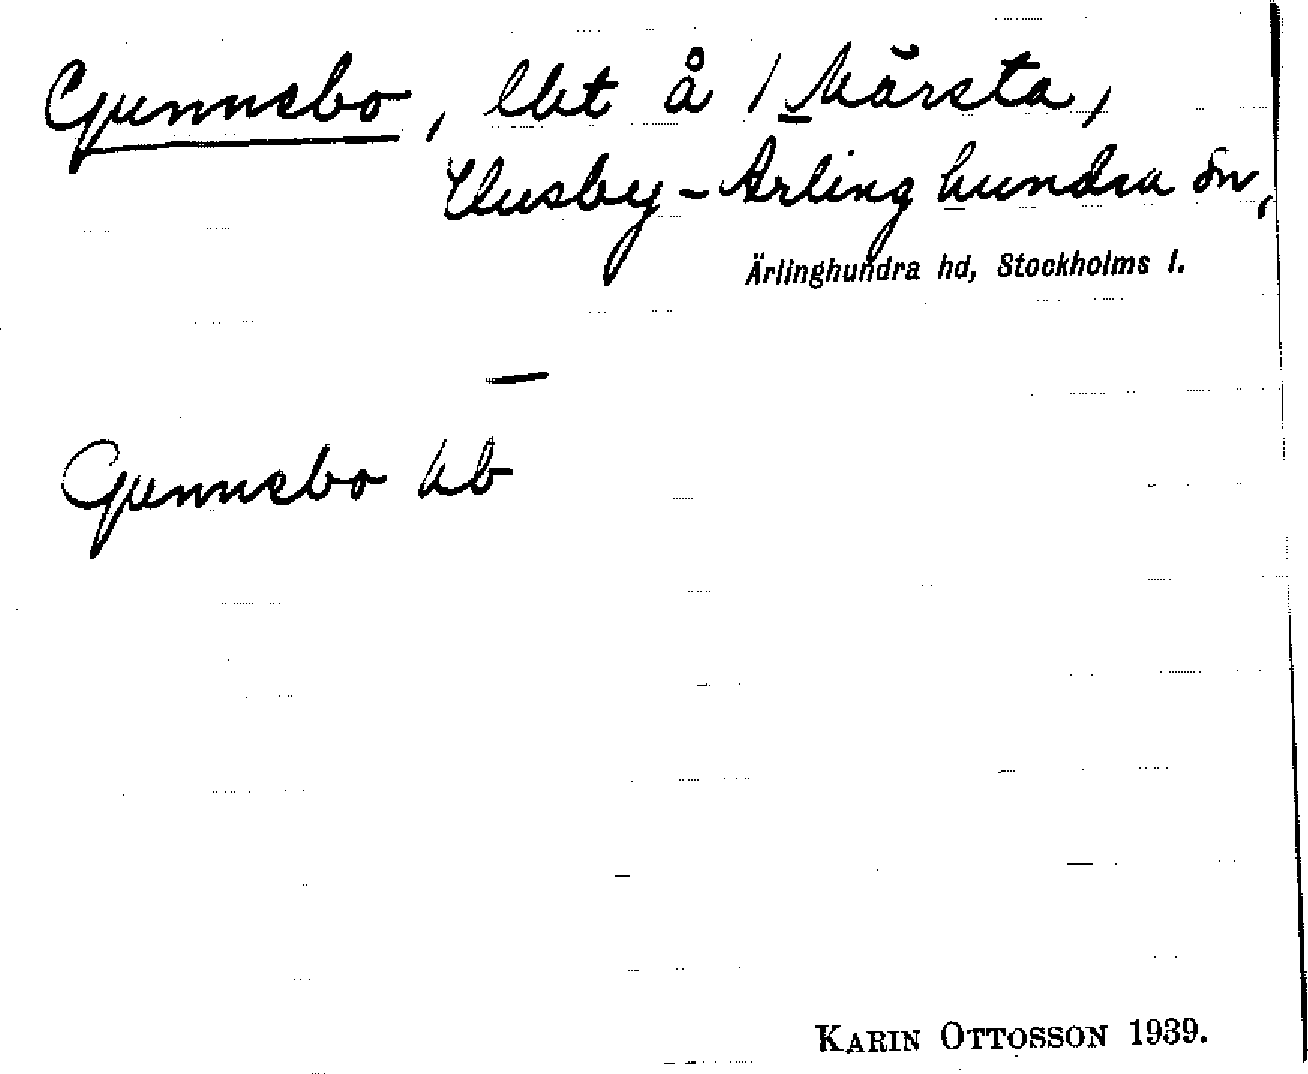 Gunnebo, lht å 1 Märsta,
Husby-Ärlinghundra sn,
Ärlinghundra hd, Stockholms l.
—
Gunnebo hb
KARIN OTTOSSON 1939.